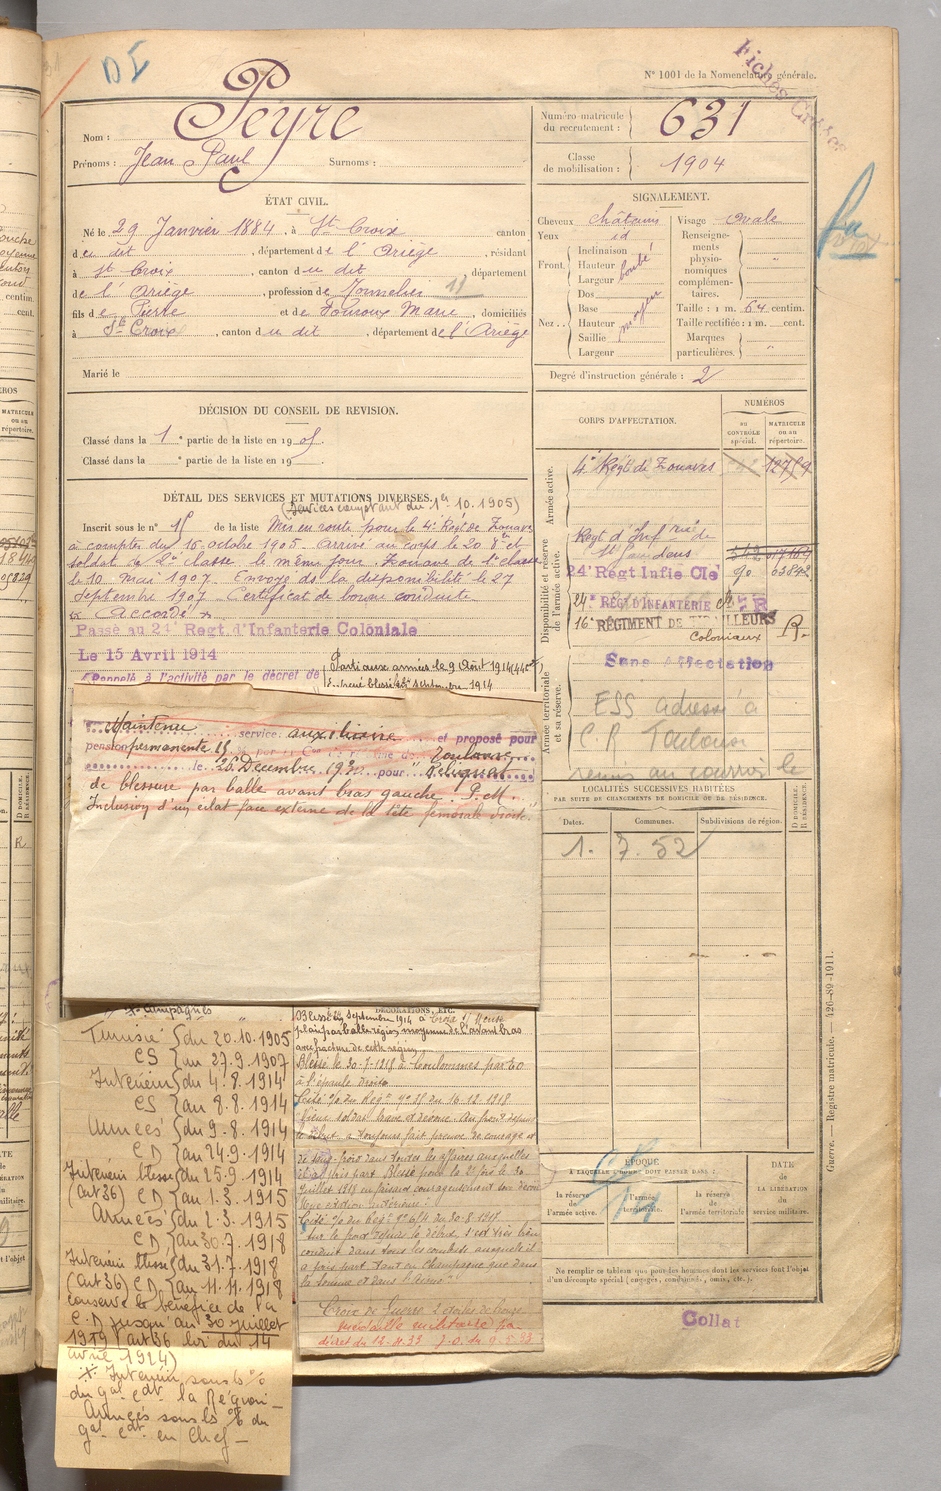 DI
Fiches
N° 1001 de la Nomenclature générale.
Nom : Peyre
Prénoms : Jean Paul Surnoms :
Numéro matricule du recrutement : 631
Classe de mobilisation : 1904
ÉTAT CIVIL.
Né le 29 Janvier 1884, à St Croix canton
du dit, département de l'Ariège, résidant
à St Croix, canton du dit, département
de l'Ariège, profession de Tonnelier 11
fils de Pierre et de Touroux Marie, domiciliés
à Ste Croix, canton du dit, département de l'Ariège
Marié le
SIGNALEMENT.
Cheveux châtains
Yeux id
Front. Inclinaison
Hauteur bombé
Largeur
Nez.. Dos
Base
Hauteur moyen
Saillie
Largeur
Visage ovale
Renseignements physionomiques complémentaires. "
Taille : 1 m. 64 centim.
Taille rectifiée : 1 m. cent.
Marques particulières. "
Degré d'instruction générale : 2
DÉCISION DU CONSEIL DE REVISION.
Classé dans la 1e partie de la liste en 1905.
Classé dans la e partie de la liste en 19 .
CORPS D'AFFECTATION.
NUMÉROS
au CONTRÔLE spécial.
MATRICULE ou au répertoire.
Armée active.
4e Régt de Zouaves 12759
Disponibilité et réserve de l'armée active.
Regt d'Infrie de
St Gaudens
24e Régt Infie Cle 90 03842
24e RÉGt D'INFANTERIE
16e RÉGIMENT DE TIRAILLEURS
Coloniaux R.
Armée territoriale et sa réserve.
Sans Affectation
ESS adressé à
C R Toulouse
remis au courrier le
DÉTAIL DES SERVICES ET MUTATIONS DIVERSES.
(Services comptant du 1er 10.1905)
Inscrit sous le n° 15 de la liste Mis en route pour le 4e Régt de Zouaves
à compter du 16 octobre 1905. Arrivé au corps le 20 8bre et
soldat de 2e classe le même jour. Zouave de 1e classe
le 10 mai 1907. Envoyé ds la disponibilité le 27
Septembre 1907. Certificat de bonne conduite
"Accordé"
Passé au 24e Regt. d'Infanterie Coloniale
Le 15 Avril 1914
Rappelé à l'activité par le décret de
Parti aux armées le 9 Août 1914
Entré blessé Septembre 1914
Maintenu service auxiliaire et proposé pour
pension permanente 15 % par
le 26 Décembre 1930 pour Reliquat
de blessure par balle avant bras gauche. P.M.
Inclusion d'un éclat face externe de la tête fémorale droite.
LOCALITÉS SUCCESSIVES HABITÉES
PAR SUITE DE CHANGEMENTS DE DOMICILE OU DE RÉSIDENCE.
Dates. Communes. Subdivisions de région. D DOMICILE. R RÉSIDENCE.
1. 7. 52
Campagnes
Tunisie du 20.10.1905
CS au 27.9.1907
Intérieur du 4.8.1914
CS au 8.8.1914
Armées du 9.8.1914
CD au 24.9.1914
Intérieur blessé du 25.9.1914
(art 36) CD au 1.3.1915
Armées du 2.3.1915
CD au 30.7.1918
Intérieur blessé du 31.7.1918
(art 36) CD au 11.11.1918
conserve le bénéfice de la
C.D jusqu'au 30 juillet
1919 (art 36 loi du 14
avril 1924)
Intérieur sous ls %
du gal cdt la Région
Armées sous ls % du
gal cdt en Chef
DÉCORATIONS, ETC.
Blessé Septembre 1914 à
plaie par balle région moyenne de l'avant bras
avec fracture de cette région
Blessé le 30-7-1918 à Coulommes par EO
à l'épaule droite
Cité % du Regt n° 75 du 16-12-1918
Vieux soldat brave et dévoué. Au front depuis
le début a toujours fait preuve de courage et
de sang froid dans toutes les affaires auxquelles
il a pris part. Blessé pour la 2e fois le 30
juillet 1918 en faisant courageusement son devoir
Cité % du Regt n° 614 du 30-8-1917
Sur le front depuis le début, s'est très bien
conduit dans tous les combats auxquels il
a pris part, tant en Champagne que dans
la Somme et dans l'Aisne
Croix de Guerre 2 étoiles de bronze
Médaille militaire par
décret du 12.4.33 J.O. du 9.5.33
ÉPOQUE
À LAQUELLE L'HOMME DOIT PASSER DANS :
la réserve de l'armée active.
l'armée territoriale.
la réserve de l'armée territoriale
DATE de LA LIBÉRATION du service militaire.
Ne remplir ce tableau que pour les hommes dont les services font l'objet
d'un décompte spécial (engagés, condamnés, omis, etc.).
Collat
Guerre. — Registre matricule. — 426-89-1911.